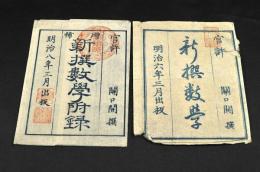 官許
關口開撰
增補
新撰數學附録
明治八年三月出板
官許
關口開撰
新撰數學
明治六年三月出板